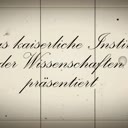 kaiserliche
der Wissenschaften
präsentiert